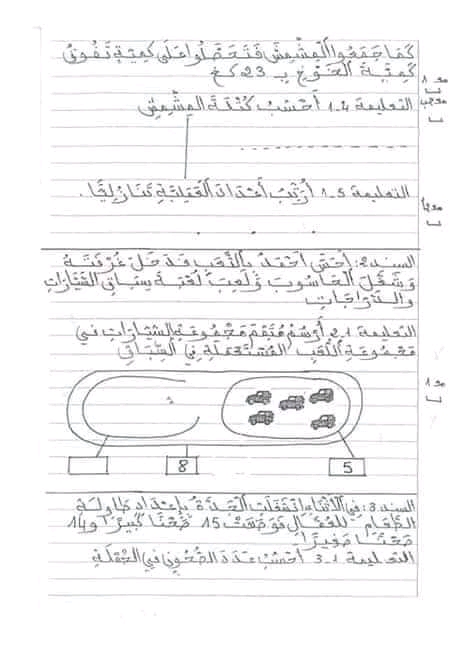 كَمَا جَمَعُوا الْمِشْمِشَ فَتَحَصَّلُوا عَلَى كَمِّيَّةٍ تَفُوقُ
كَمِّيَّةَ الْخَوْخِ بِـ 23 كغ
مع 1
التعليمة 1.4 أَحْسُبُ كُتْلَةَ الْمِشْمِشِ
التعليمة 1.5 أُرَتِّبُ أَعْدَادَ الْعَمَلِيَّةِ تَنَازُلِيًّا.
السند 2: أَحَسَّ أَحْمَدُ بِالتَّعَبِ فَدَخَلَ غُرْفَتَهُ
وَشَغَّلَ الْحَاسُوبَ وَلَعِبَ لُعْبَةَ سِبَاقِ السَّيَّارَاتِ
وَالدَّرَّاجَاتِ
التعليمة 2.1 أَرْسُمُ مُتَمِّمَ مَجْمُوعَةِ السَّيَّارَاتِ فِي
مَجْمُوعَةِ اللُّعَبِ الْمُسْتَعْمَلَةِ فِي السِّبَاقِ
مع 1
8
5
السند 3: فِي الْأَثْنَاءِ انْشَغَلَتِ الْجَدَّةُ بِإِعْدَادِ طَاوِلَةِ
الطَّعَامِ لِلْعُمَّالِ فَوَضَعَتْ 15 صَحْنًا كَبِيرًا و 14
صَحْنًا صَغِيرًا.
التعليمة 3.1 أَحْسُبُ عَدَدَ الصُّحُونِ فِي الْجُمْلَةِ